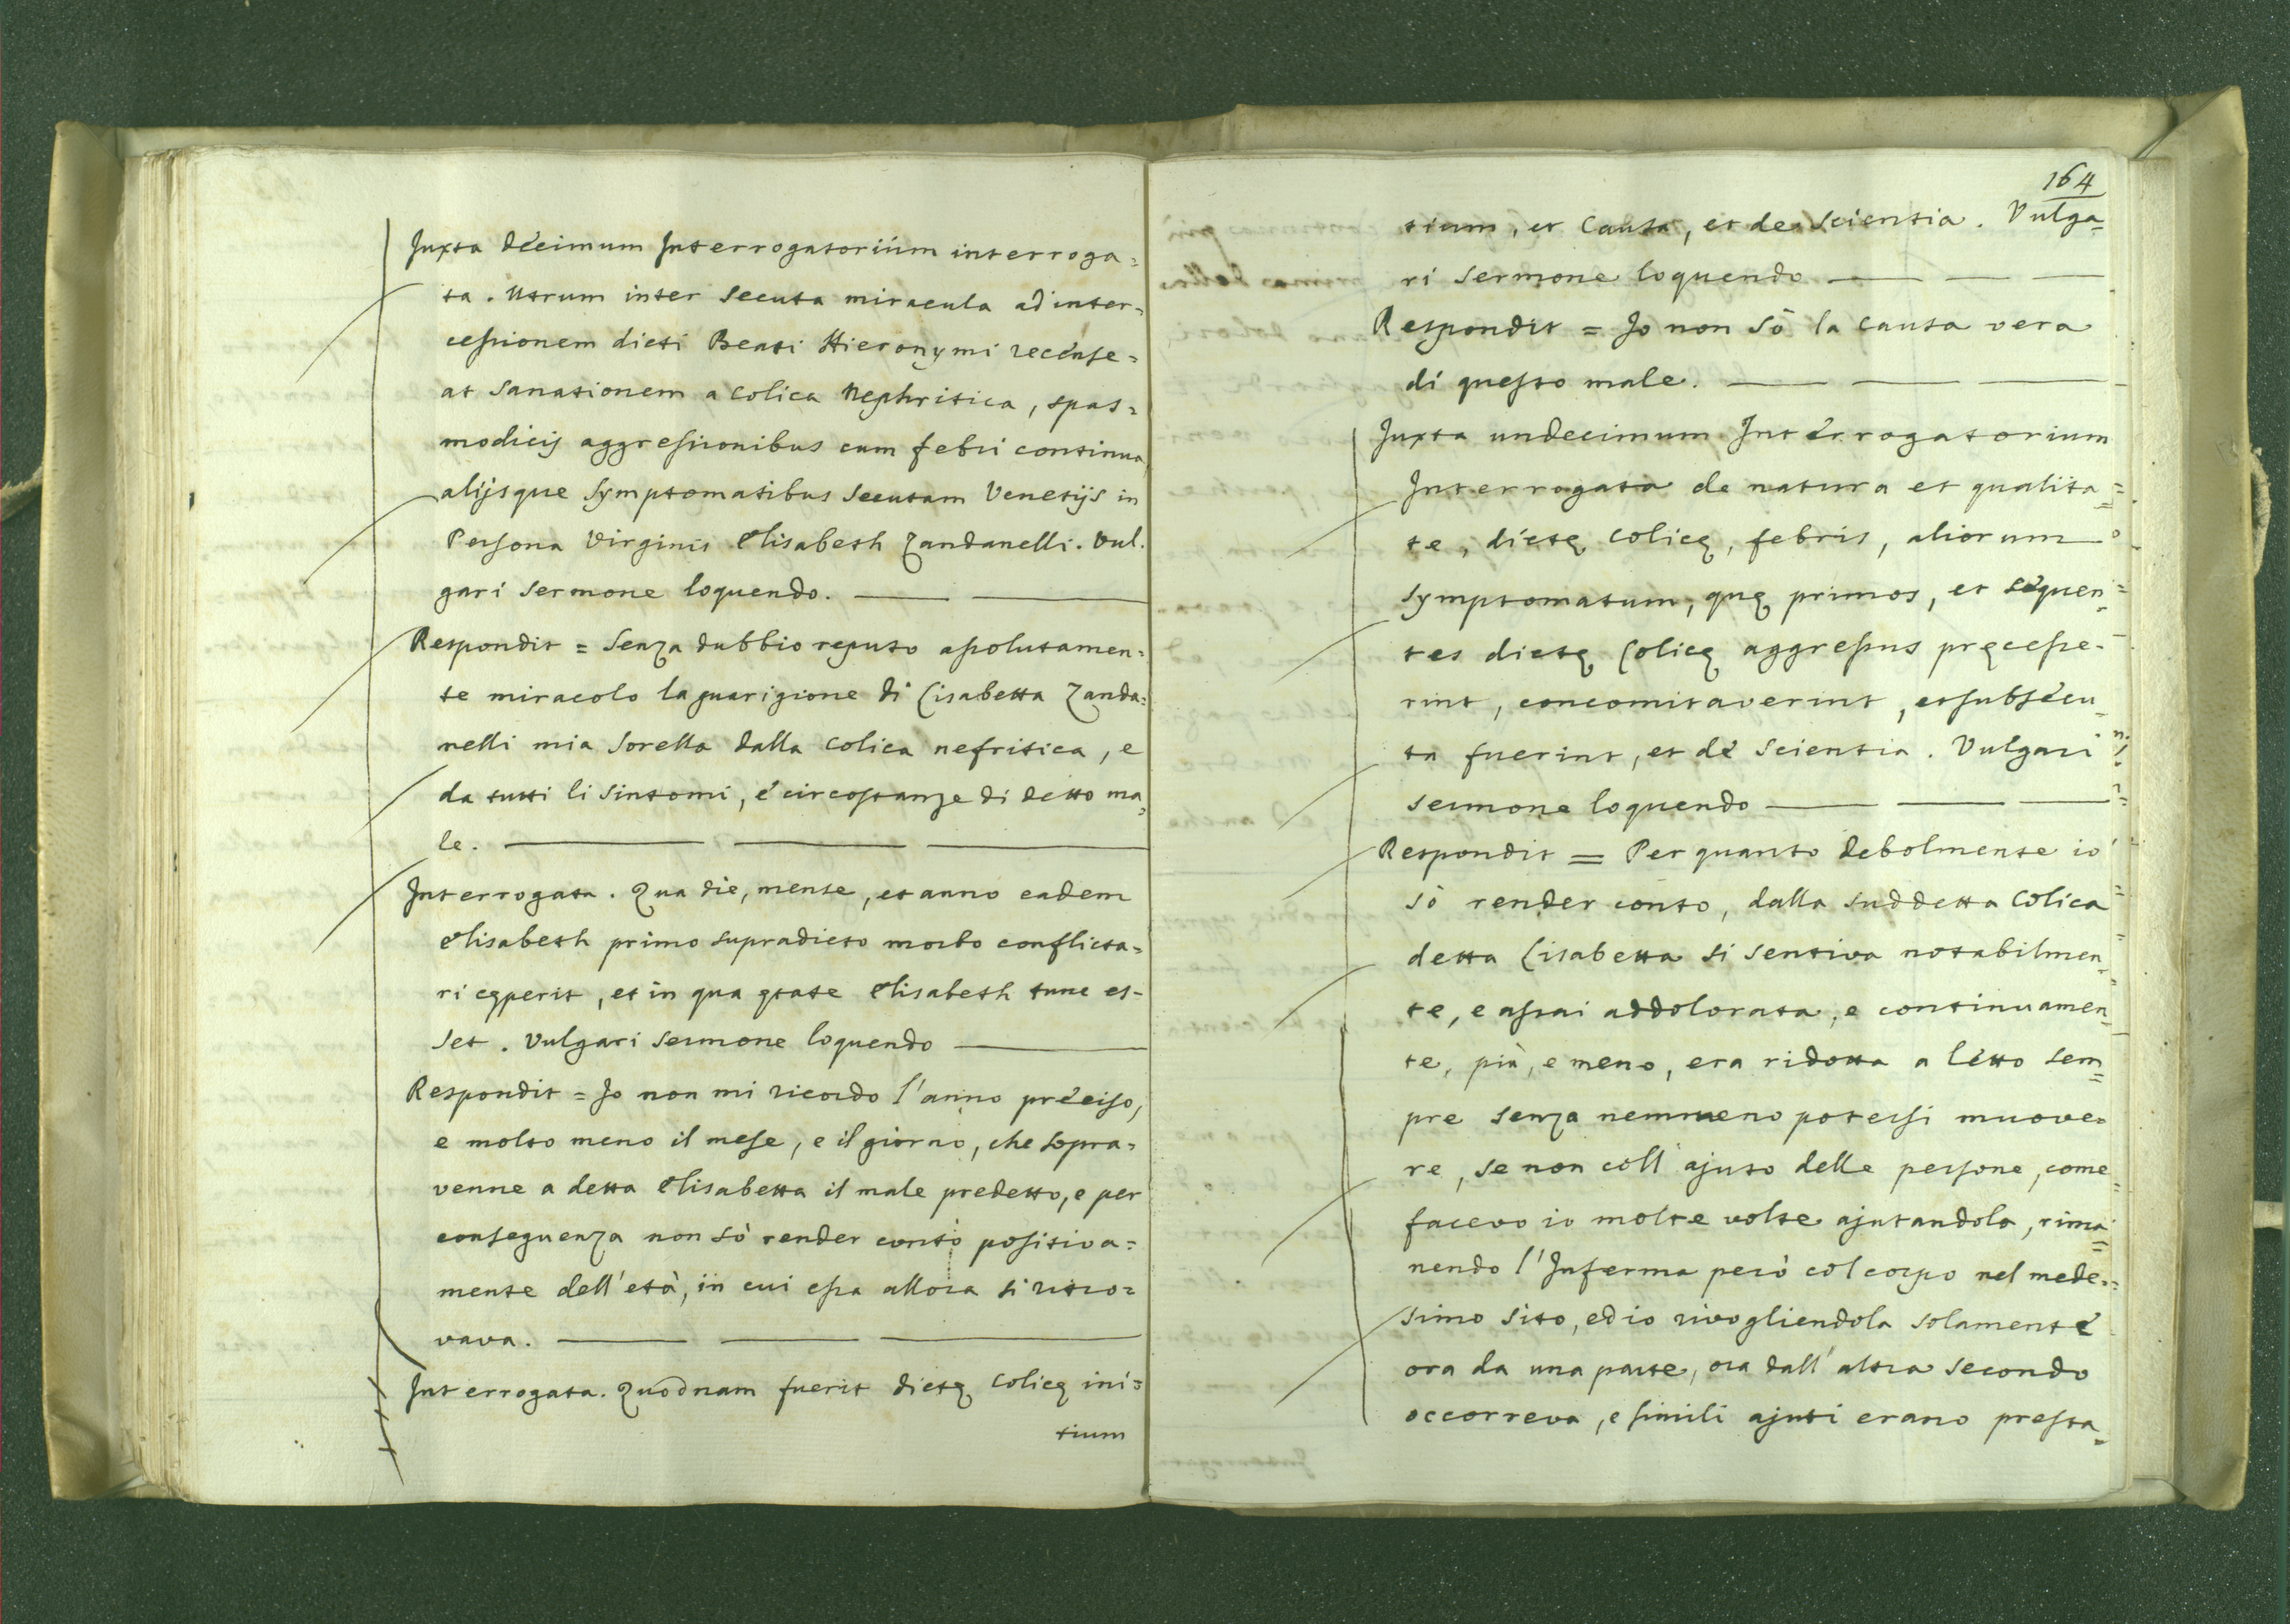 Juxta décimum Interrogatorium interroga=
ta. Utrum inter secuta miracula ad inter=
cessionem dicti Beati Hieronymi recense=
at sanationem a colica Nephritica, spas=
modicis aggressionibus cum febri continua
alijsque symptomatibus secutam Venetijs in
Persona Virginis Elisabeth Zandanelli. Vul.
gari sermone loquendo.
Respondit = Senza dubbio reputo assolutamen=
te miracolo la guarigione di Lisabetta Zanda=
nelli mia sorella dalla colica nefritica, e
da tutti li sintomi, e circostanze di detto ma=
le.
Interrogata. Qua die, mense, et anno eadem
Elisabeth primo supradicto morbo conflicta=
ri cęperit, et in qua ętate Elisabeth tunc es-
set. Vulgari sermone loquendo
Respondit = Io non mi ricordo l'anno preciso,
e molto meno il mese, e il giorno, che sopra=
venne a detta Elisabetta il male predetto, e per
conseguenza non sò render conto positiva=
mente dell'età, in cui essa allora si ritro=
vava.
Interrogata. Quodnam fuerit dictę colicę ini=
tium
164
tium, et causa, et de scientia. Vulga=
ri sermone loquendo
Respondit = Io non sò la causa vera
di questo male.
Juxta undecimum Interrogatorium
Interrogata de natura et qualita=
te, dictę colicę, febris, aliorum
symptomatum, quę primos, et sequen=
tes dictę Colicę aggressus pręcesse-
rint, concomitaverint, et subsecu=
ta fuerint, et de scientia. Vulgari
sermone loquendo
Respondit = Per quanto debolmente io
sò render conto, dalla suddetta Colica
detta Lisabetta si sentiva notabilmen=
te, e assai addolorata, e continuamen=
te, più, e meno, era ridotta a letto sem=
pre senza nemmeno potersi muove=
re, se non coll'ajuto delle persone, come
facevo io molte volte ajutandola, rima=
nendo l'Inferma però col corpo nel mede=
simo sito, ed io rivogliendola solamente
ora da una parte, ora dall'altra secondo
occorreva, e simili ajuti erano presta=